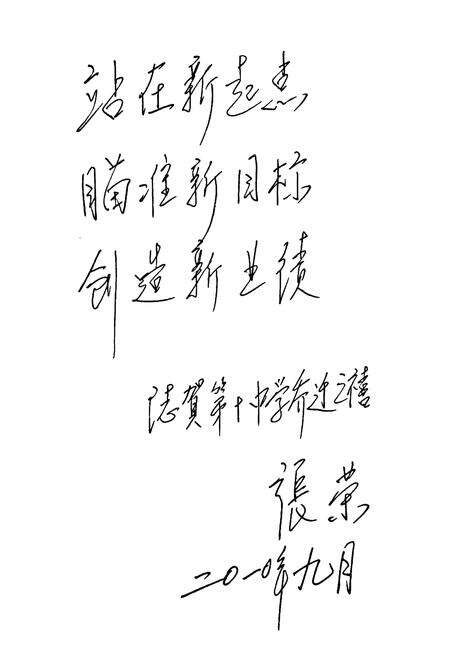 站在新起点
瞄准新目标
创造新业绩
志賀第十中学乔迁之禧
張荣
二〇一〇年九月